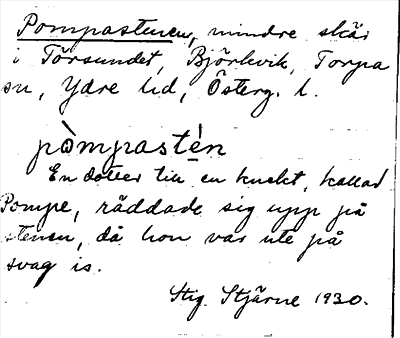 Pompastenen, mindre skär
i Törsundet, Björkvik, Torpa
sn, Ydre hd, Österg. l.
pòmpastén
En dotter till en knekt, kallad
Pompe, räddade sig upp på
stenen, då hon var ute på
svag is.
Stig Stjärne 1930.